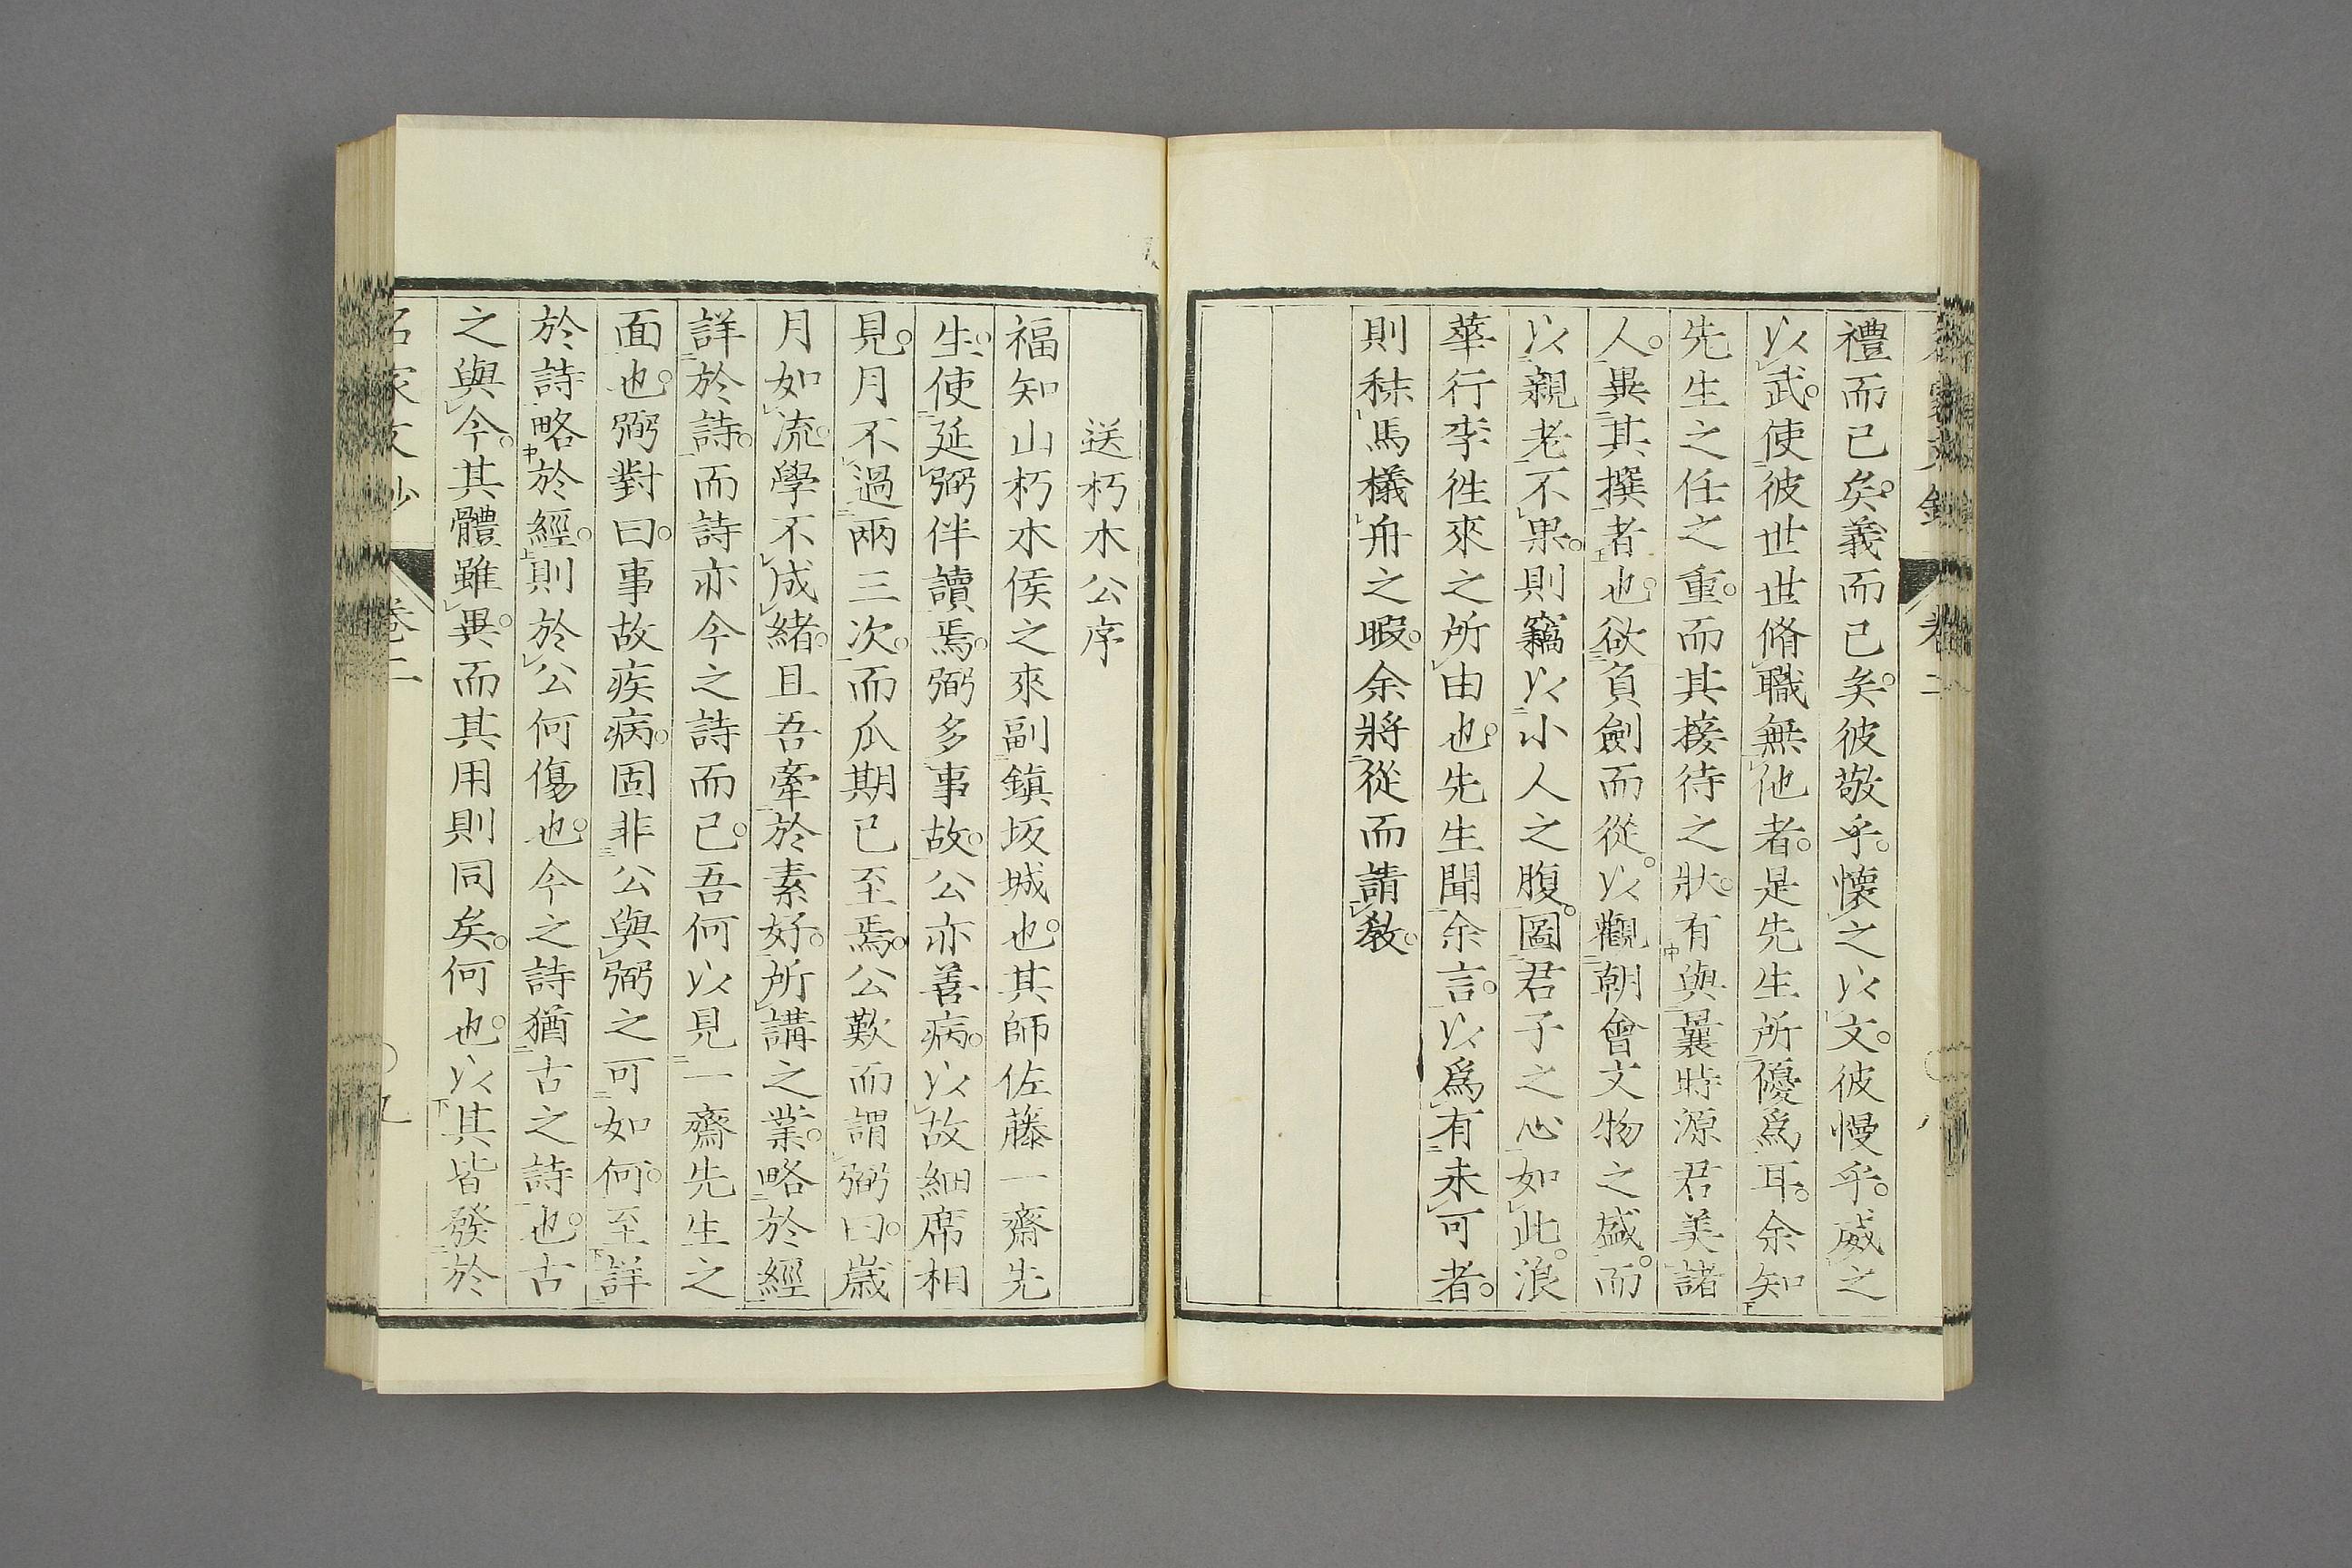 禮而已矣。義而已矣。彼敬乎。懷之以文。彼慢乎。威之
以武。使彼世世脩職無他者。是先生所優爲耳。余知
先生之任之重。而其接待之狀。有與曩時源君美諸
人。異其撰者也。欲負劍而從。以觀朝會文物之盛。而
以親老不果。則竊以小人之腹。圖君子之心如此。浪
華行李徃來之所由也。先生聞余言。以爲有未可者。
則秣馬檥舟之暇。余將從而請敎。
送朽木公序
福知山朽木侯之來副鎭坂城也。其師佐藤一齋先
生。使延弼伴讀焉。弼多事故。公亦善病。以故細席相
見。月不過兩三次。而瓜期已至焉。公歎而謂弼曰。歲
月如流。學不成緒。且吾牽於素好。所講之業。略於經
詳於詩。而詩亦今之詩而已。吾何以見一齋先生之
面也。弼對曰。事故疾病。固非公與弼之可如何。至詳
於詩略於經。則於公何傷也。今之詩猶古之詩也。古
之與今。其體雖異。而其用則同矣。何也。以其皆發於
名家文抄 卷二 ○九